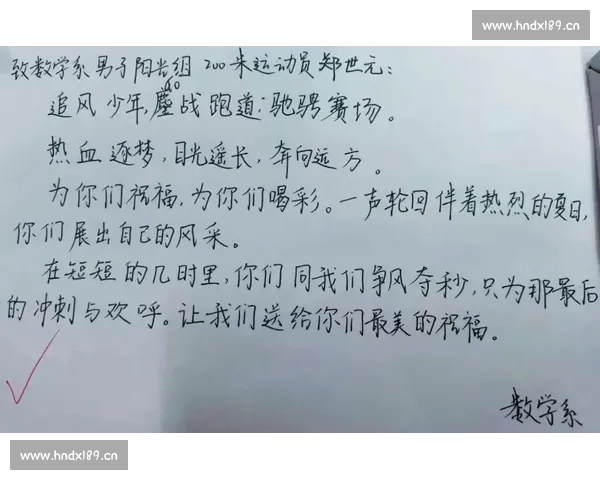 www.hndxl89.cn
致数学系男子阳光组 200米运动员郑世元:
áo
追风少年,鏖战跑道;驰骋赛场。
热血逐梦,目光遥长,奔向远方。
为你们祝福,为你们喝彩。一声轮回伴着热烈的夏日,
你们展出自己的风采。
在短短的几时里,你们同我们争风夺秒,只为那最后
的冲刺与欢呼。让我们送给你们最美的祝福。
数学系
www.hndxl89.cn